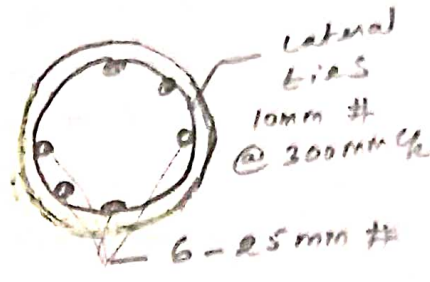 Lateral
ties
10mm #
@ 300mm c/c
6 - 25mm #